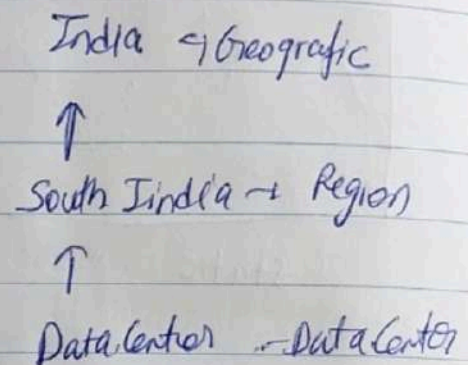 India ↤ Geografic
↑
South Iindia → Region
↑
DataCenter - DataCenter